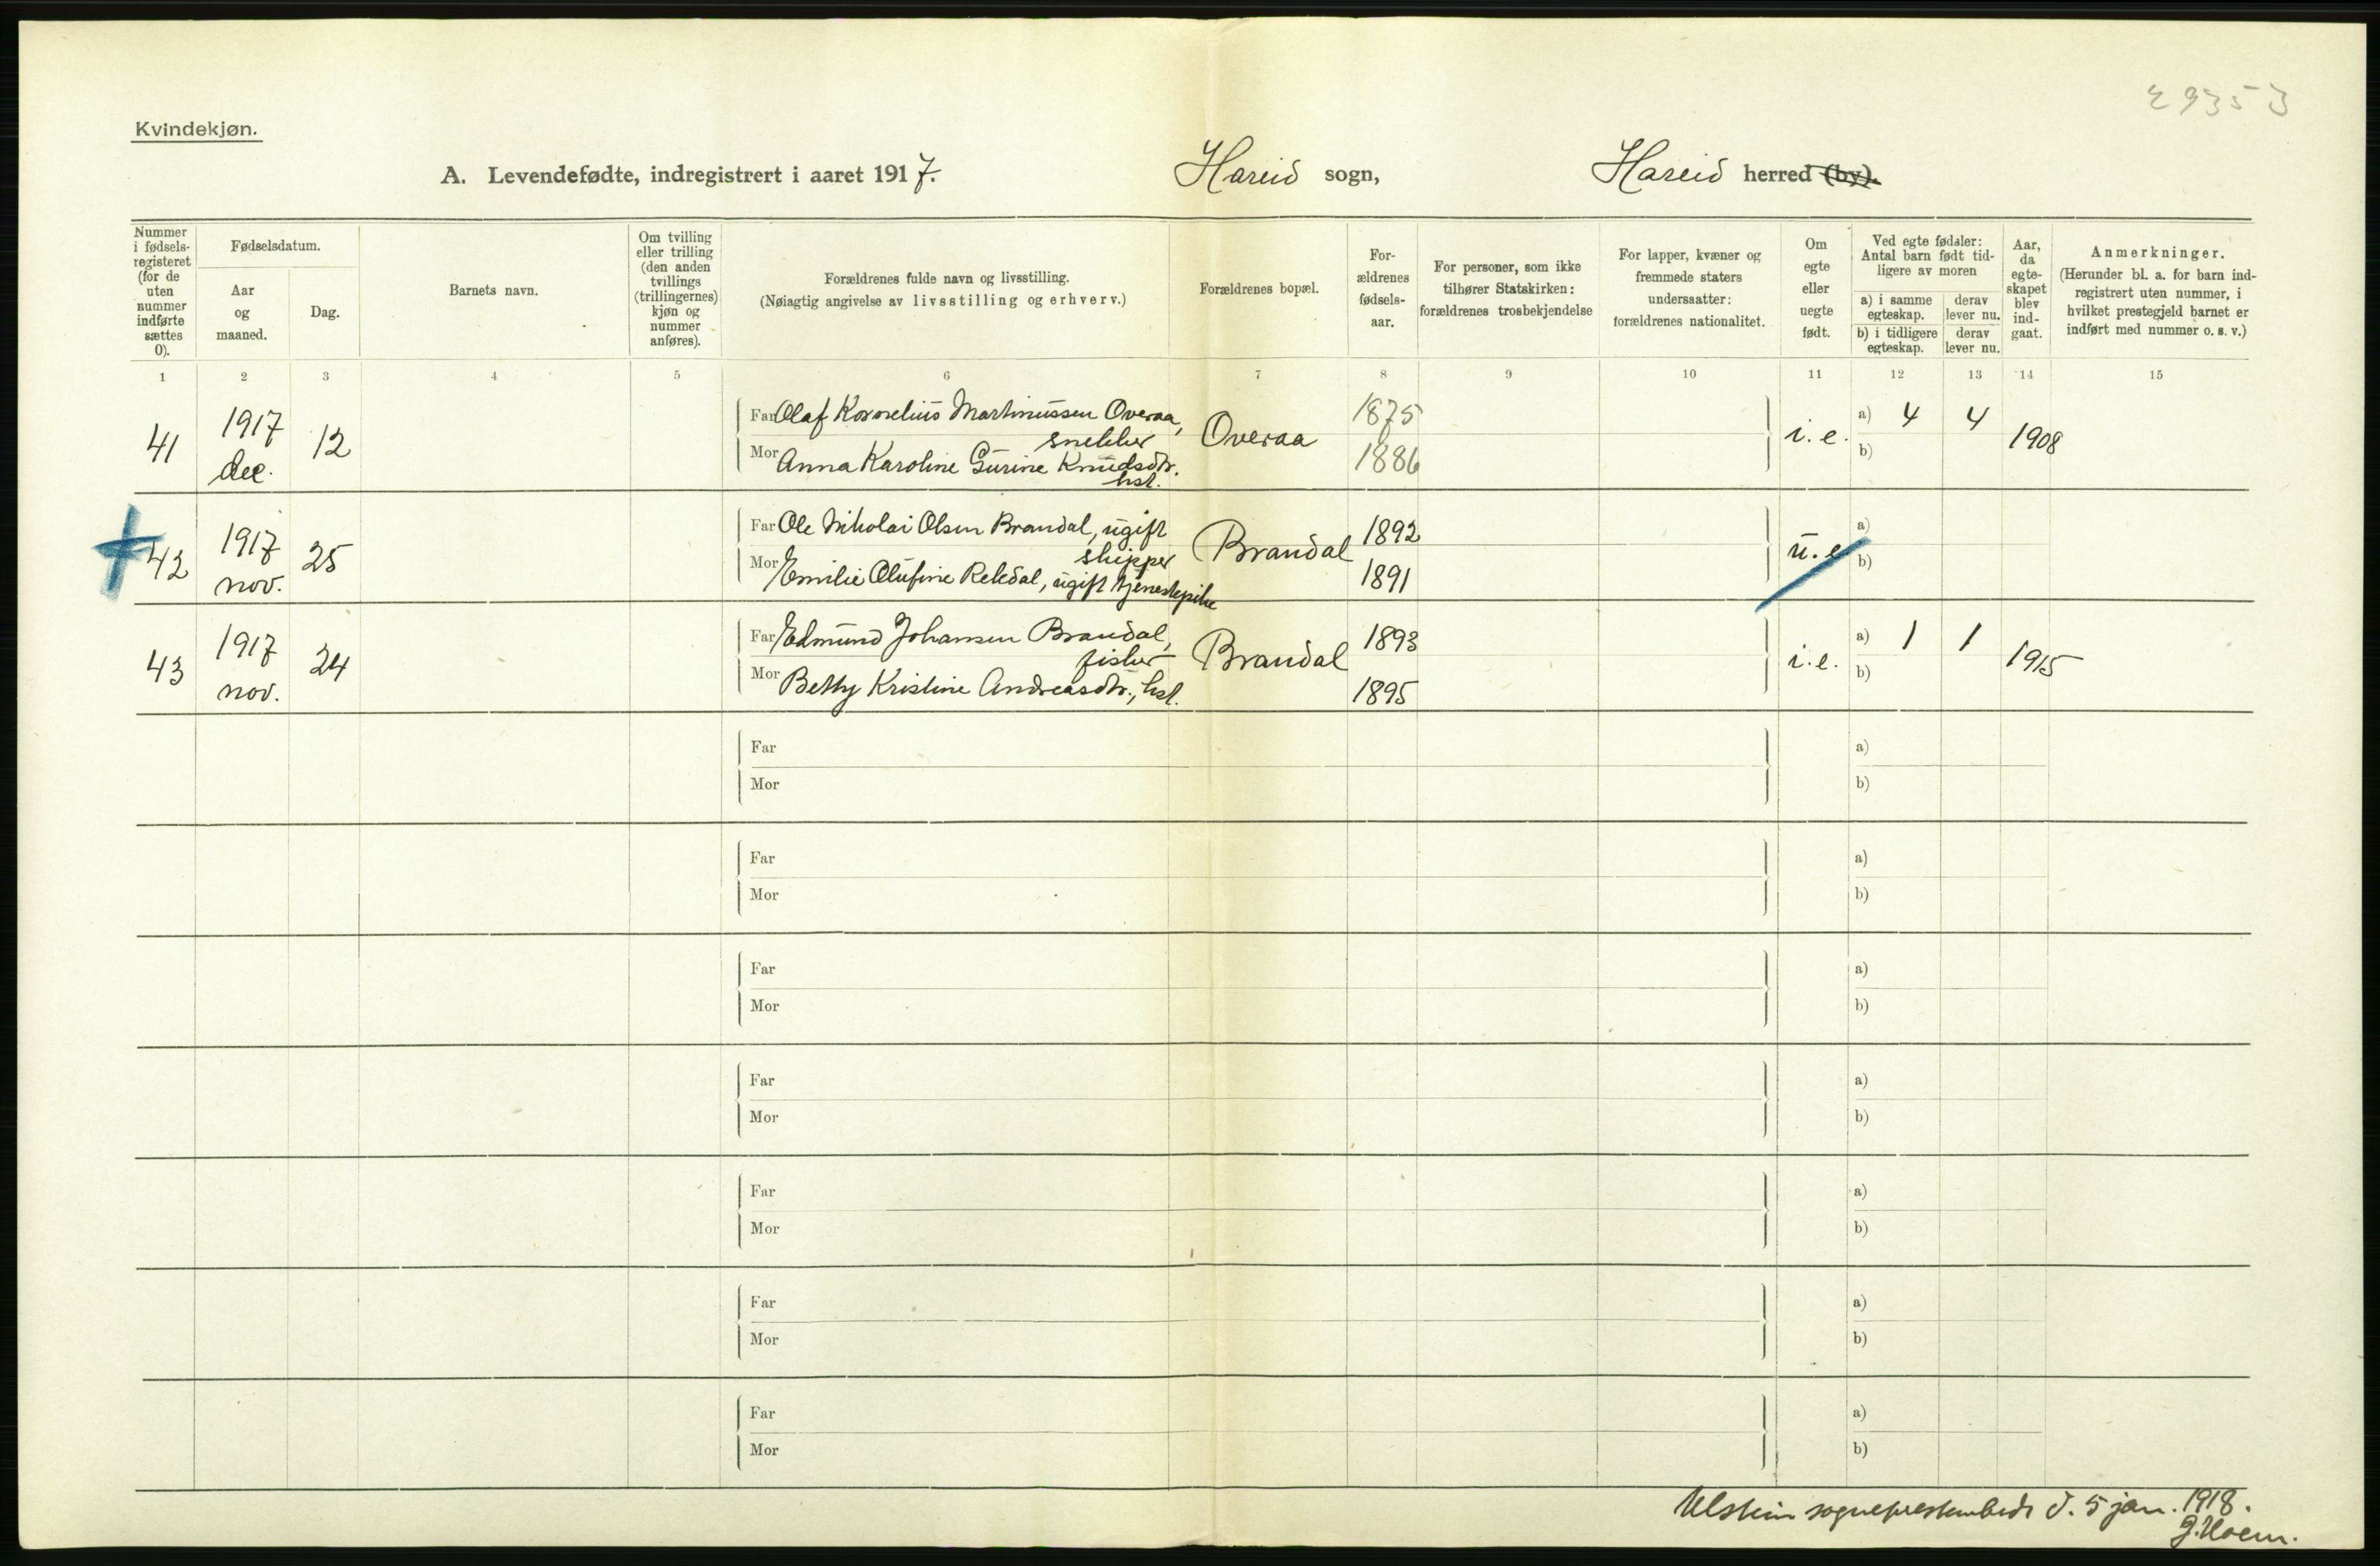 29353
Kvindekjøn.
A. Levendefødte, indregistrert i aaret 1917. Hareid sogn, Hareid herred (by).
Nummer i fødsels-registeret (for de uten nummer indførte sættes 0).
Fødselsdatum.
Aar og maaned.
Dag.
Barnets navn.
Om tvilling eller trilling (den anden tvillings (trillingernes) kjøn og nummer anføres).
Forældrenes fulde navn og livsstilling.
(Nøiagtig angivelse av livsstilling og erhverv.)
Forældrenes bopæl.
For-ældrenes fødsels-aar.
For personer, som ikke tilhører Statskirken: forældrenes trosbekjendelse
For lapper, kvæner og fremmede staters undersaatter: forældrenes nationalitet.
Om egte eller uegte født.
Ved egte fødsler: Antal barn født tid-ligere av moren
a) i samme egteskap.
derav lever nu.
b) i tidligere egteskap.
derav lever nu.
Aar, da egte-skapet blev ind-gaat.
Anmerkninger.
(Herunder bl. a. for barn ind-registrert uten nummer, i hvilket prestegjeld barnet er indført med nummer o. s. v.)
1 2 3 4 5 6 7 8 9 10 11 12 13 14 15
41 1917 dec. 12
Far Olaf Kornelius Martinussen Overaa,
snekker
Mor Anna Karoline Gurine Knudsdtr.
hst.
Overaa 1875 1886 i. e. a) 4 4 b) 1908
42 1917 nov. 25
Far Ole Nikolai Olsen Brandal, ugift
skipper
Mor Emilie Olufine Rekdal, ugift tjenestepike
Brandal 1892 1891 u. e. a) b)
43 1917 nov. 24
Far Edmund Johansen Brandal,
fisker
Mor Betty Kristine Andreasdtr., hst.
Brandal 1893 1895 i. e. a) 1 1 b) 1915
Far a)
Mor b)
Far a)
Mor b)
Far a)
Mor b)
Far a)
Mor b)
Far a)
Mor b)
Far a)
Mor b)
Far a)
Mor b)
Ulstein sogneprestembede d. 5 jan. 1918.